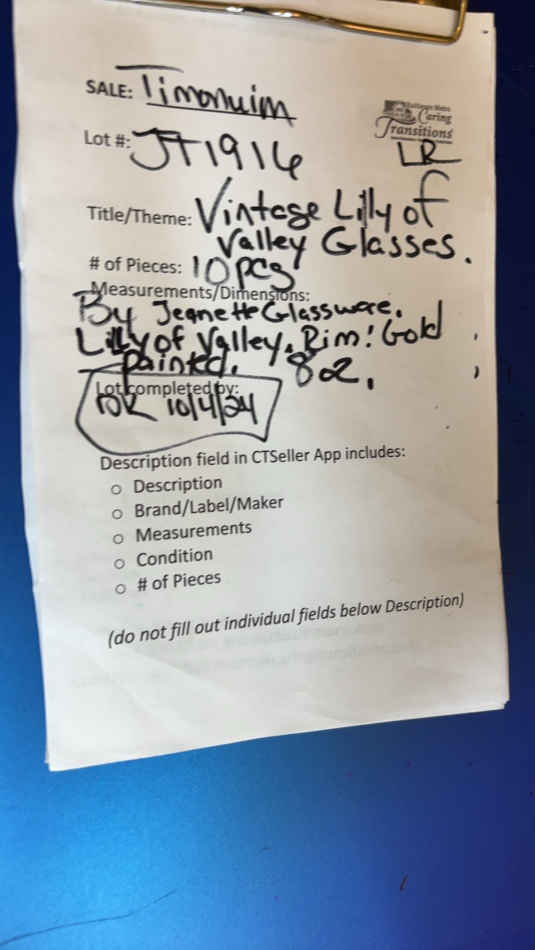 SALE: Timonuim
Baltimore Metro
Caring
Transitions
Lot #: JT1916
LR
Title/Theme: Vintage Lilly of
Valley Glasses.
# of Pieces: 10 pcs
Measurements/Dimensions:
By Jeanette Glassware.
Lilly of Valley. Rim! Gold
painted. 8oz.
Lot completed by:
10/4/24
Description field in CTSeller App includes:
o Description
o Brand/Label/Maker
o Measurements
o Condition
o # of Pieces
(do not fill out individual fields below Description)